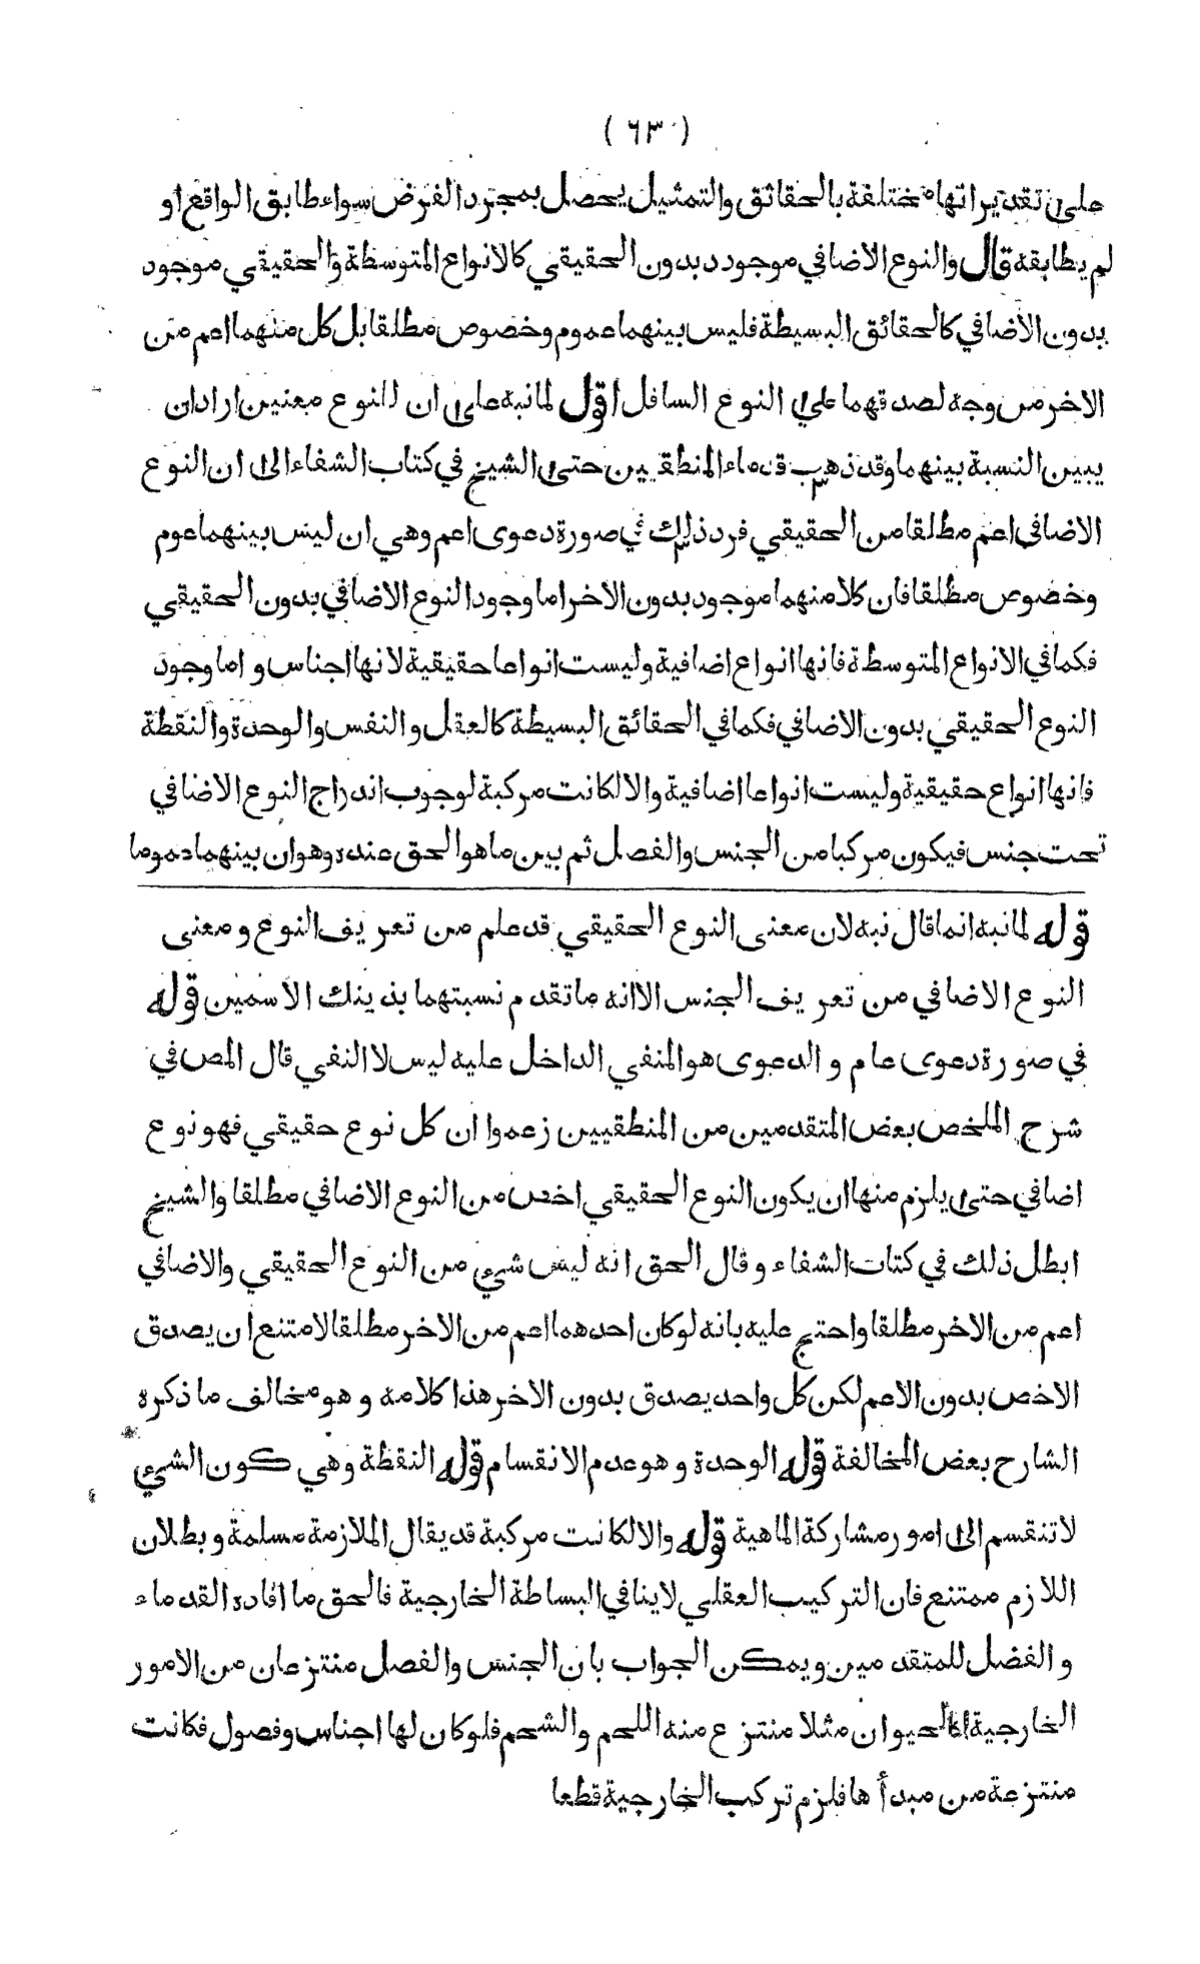 ( ٦٣ )
على تقدير انها مختلفة بالحقائق والتمثيل يحصل بمجرد الفرض سواء طابق الواقع او
لم يطابقه قال والنوع الاضافي موجود بدون الحقيقي كالانواع المتوسطة والحقيقي موجود
بدون الاضافي كالحقائق البسيطة فليس بينهما عموم وخصوص مطلقا بل كل منهما اعم من
الاخر من وجه لصدقهما على النوع السافل اقول لما نبه على ان للنوع معنين اراد ان
يبين النسبة بينهما وقد ذهب قدماء المنطقيين حتى الشيخ في كتاب الشفاء الى ان النوع
الاضافي اعم مطلقا من الحقيقي فرد ذلك في صورة دعوى اعم وهي ان ليس بينهما عوم
وخصوص مطلقا فان كلا منهما موجود بدون الاخر اما وجود النوع الاضافي بدون الحقيقي
فكما في الانواع المتوسطة فانها انواع اضافية وليست انواعا حقيقية لانها اجناس و اما وجود
النوع الحقيقي بدون الاضافي فكما في الحقائق البسيطة كالعقل والنفس والوحدة والنقطة
فانها انواع حقيقية وليست انواعا اضافية والا لكانت مركبة لوجوب اندراج النوع الاضافي
تحت جنس فيكون مركبا من الجنس والفصل ثم بين ما هو الحق عنده وهو ان بينهما عموما
قوله لما نبه انما قال نبه لان معنى النوع الحقيقي قد علم من تعريف النوع و معنى
النوع الاضافي من تعريف الجنس الا انه ما تقدم نسبتهما بذينك الاسمين قوله
في صورة دعوى عام و الدعوى هو المنفي الداخل عليه ليس لا النفي قال المص في
شرح الملخص بعض المتقدمين من المنطقيين زعموا ان كل نوع حقيقي فهو نوع
اضافي حتى يلزم منها ان يكون النوع الحقيقي اخص من النوع الاضافي مطلقا والشيخ
ابطل ذلك في كتاب الشفاء و قال الحق انه ليس شيء من النوع الحقيقي والاضافي
اعم من الاخر مطلقا واحتج عليه بانه لو كان احدهما اعم من الاخر مطلقا لامتنع ان يصدق
الاخص بدون الاعم لكن كل واحد يصدق بدون الاخر هذا كلامه و هو مخالف ما ذكره
الشارح بعض المخالفة قوله الوحدة و هو عدم الانقسام قوله النقطة وهي كون الشيء
لا تنقسم الى امور مشاركة الماهية قوله والا لكانت مركبة قد يقال الملازمة مسلمة و بطلان
اللازم ممتنع فان التركيب العقلي لا ينافي البساطة الخارجية فالحق ما افاده القدماء
و الفضل للمتقدمين ويمكن الجواب بان الجنس والفصل منتزعان من الامور
الخارجية كالحيوان مثلا منتزع منه اللحم والشحم فلو كان لها اجناس وفصول فكانت
منتزعة من مبدأ ها فلزم تركب الخارجية قطعا